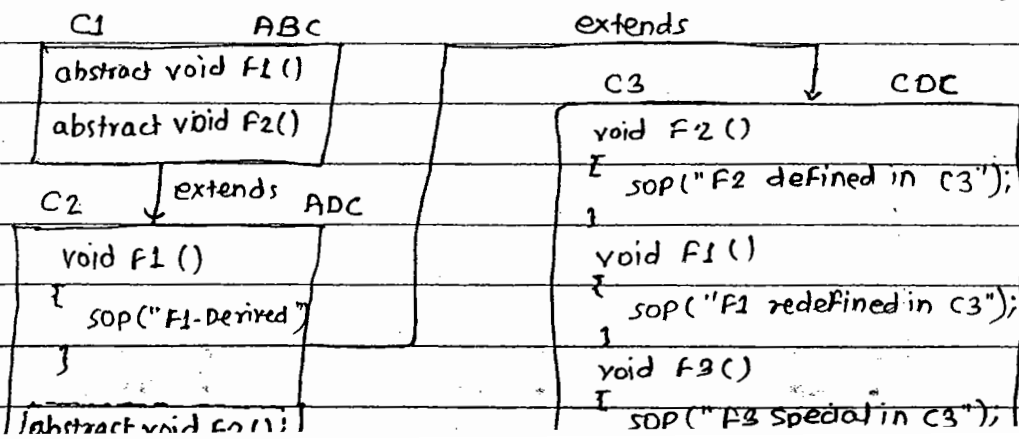 C1 ABC
abstract void F1 ()
abstract void F2()
extends
C2 ADC
void F1 ()
{
sop("F1-Derived")
}
abstract void F2();
extends
C3 CDC
void F2 ()
{
sop("F2 defined in C3");
}
void F1 ()
{
sop("F1 redefined in C3");
}
void F3 ()
{
sop("F3 special in C3");